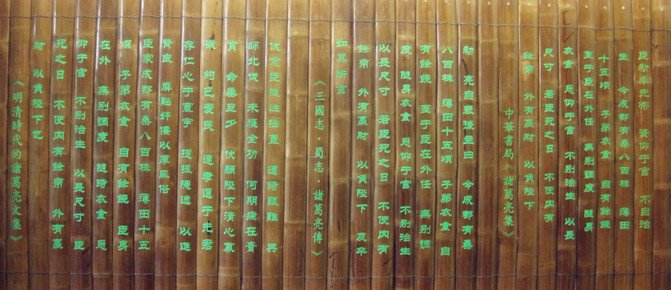 臣初奉先帝 資仰于官 不自治
生 今成都有桑八百株 薄田
十五頃 子弟衣食 自有餘饒
至于臣在外任 無別調度 隨身
衣食 悉仰于官 不別治生 以長
尺寸 若臣死之日 不使內有
餘帛 外有贏財 以負陛下
中華書局《諸葛亮集》
初 亮自表後主曰 今成都有桑
八百株 薄田十五頃 子弟衣食 自
有餘饒 至于臣在外任 無別調
度 隨身衣食 悉仰于官 不別治生
以長尺寸 若臣死之日 不使內有
餘帛 外有贏財 以負陛下 及卒
如其所言
《三國志·蜀志·諸葛亮傳》
伏念臣賦性拙直 遭時艱難 興
師北伐 未獲全功 何期病在膏
肓 命垂旦夕 伏願陛下清心寡
欲 約己愛民 達孝道于先君
存仁心于寰宇 提拔隱逸 以進
賢良 屏黜奸讒 以厚風俗
臣家成都有桑八百株 薄田十五
頃 子弟衣食 自有餘饒 臣身
在外 無別調度 隨時衣食 悉
仰于官 不別治生 以長尺寸 臣
死之日 不使內有餘帛 外有贏
財 以負陛下也
《明清時代的諸葛亮文集》